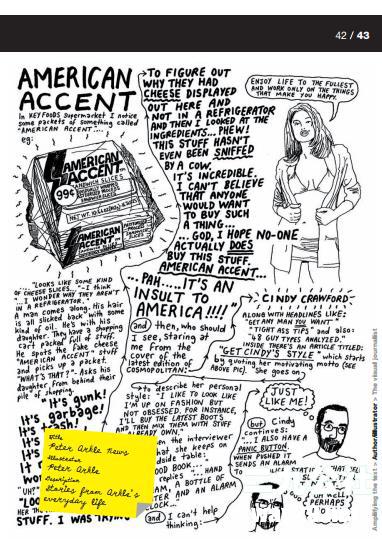 42 / 43
AMERICAN
ACCENT
In KEY FOODS Supermarket I notice
some packets of something called
"AMERICAN ACCENT"...
eg:
AMERICAN
ACCENT
99¢
SANDWICH SLICES
AMERICAN
ACCENT
"...LOOKS LIKE SOME KIND
OF CHEESE SLICES..."-I think
"...I WONDER WHY THEY AREN'T
IN A REFRIGERATOR..."
A man comes along. His hair
is all slicked back with some
kind of oil. He's with his
daughter. They have a shopping
cart packed full of stuff.
He spots the fake cheese
"AMERICAN ACCENT" stuff
and picks up a packet.
"WHAT'S THAT?". Asks his
daughter from behind their
pile of shopping.
It's gunk!
It's garbage!
STUFF. I WAS TRYING
TO FIGURE OUT
WHY THEY HAD
CHEESE DISPLAYED
OUT HERE AND
NOT IN A REFRIGERATOR
AND THEN I LOOKED AT THE
INGREDIENTS... PHEW!
THIS STUFF HASN'T
EVEN BEEN SNIFFED
BY A COW.
IT'S INCREDIBLE.
I CAN'T BELIEVE
THAT ANYONE
WOULD WANT
TO BUY SUCH
A THING...
...GOD, I HOPE NO-ONE
ACTUALLY DOES
BUY THIS STUFF.
AMERICAN ACCENT...
...PAH.....IT'S AN
INSULT TO
AMERICA!!!!"
and then, who should
I see, staring at
me from the
cover of the
latest edition of
COSMOPOLITAN:
ENJOY LIFE TO THE FULLEST
AND WORK ONLY ON THE THINGS
THAT MAKE YOU HAPPY.
CINDY CRAWFORD!
ALONG WITH HEADLINES LIKE:
"GET ANY MAN YOU WANT"
"TIGHT ASS TIPS" and also:
"48 GUY TYPES ANALYZED."
INSIDE THERE'S AN ARTICLE TITLED:
"GET CINDY'S STYLE" which starts
by quoting her motivating motto (SEE
ABOVE PIC). She goes on,
to describe her personal
style: "I LIKE TO LOOK LIKE
I'M UP ON FASHION BUT
NOT OBSESSED. FOR INSTANCE,
I'LL BUY THE LATEST BOOTS
AND THEN MIX THEM WITH STUFF
ALREADY OWN."
the interviewer
that she keeps on
side table:
OOD BOOK...
replies
AM, A BOTTLE OF
AND AN ALARM
LOCK...
and I can't help
thinking:
JUST
LIKE ME!
but Cindy
continues:
...I ALSO HAVE A
PANIC BUTTON.
WHEN PUSHED IT
SENDS AN ALARM
TO
um well,
PERHAPS
Title
Peter Arkle News
Illustration
Peter Arkle
Description
Stories from Arkle's
everyday life
Amplifying the text > Author/Illustrator > The visual journalist